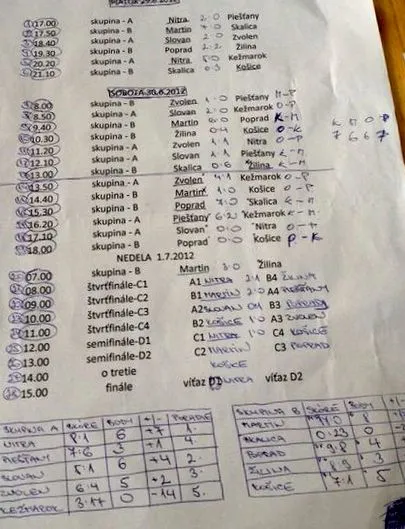 PIATOK 29.6.2012
17.00 skupina - A Nitra 2:0 Piešťany
17.50 skupina - B Martin 7:0 Skalica
18.40 skupina - A Slovan 2:0 Zvolen
19.30 skupina - B Poprad 2:2 Žilina
20.20 skupina - A Nitra 5:0 Kežmarok
21.10 skupina - B Skalica 0:3 Košice
SOBOTA 30.6.2012
8.00 skupina - A Zvolen 1:0 Piešťany M-P
8.50 skupina - A Slovan 2:0 Kežmarok O-P
9.40 skupina - B Martin 6:0 Poprad K-M K M O P
10.30 skupina - B Žilina 0:4 Košice O-K 7 6 6 7
11.20 skupina - A Zvolen 1:1 Nitra O-P
12.10 skupina - A Slovan 1:1 Piešťany K-M
13.00 skupina - B Skalica 0:6 Žilina K-M
13.50 skupina - A Zvolen 4:1 Kežmarok O-P
14.40 skupina - B Martin 1:0 Košice O-P
15.30 skupina - B Poprad 7:0 Skalica K-M
16.20 skupina - A Piešťany 6:2 Kežmarok K-M
17.10 skupina - A Slovan 0:0 Nitra O-P
18.00 skupina - B Poprad 0:0 Košice P-K
NEDELA 1.7.2012
07.00 skupina - B Martin 3:0 Žilina
08.00 štvrťfinále-C1 A1 NITRA 2:1 B4 ŽILINA
09.00 štvrťfinále-C2 B1 MARTIN 2:0 A4 PIEŠŤANY
10.00 štvrťfinále-C3 A2 SLOVAN 0:1 B3 POPRAD
11.00 štvrťfinále-C4 B2 KOŠICE 1:0 A3 ZVOLEN
12.00 semifinále-D1 C1 NITRA 1:0 C4 KOŠICE
13.00 semifinále-D2 C2 MARTIN C3 POPRAD
14.00 o tretie KOŠICE
15.00 finále víťaz D1 NITRA víťaz D2
SKUPINA A SKÓRE BODY +/- PORADIE
NITRA 8:1 6 +7 1.
PIEŠŤANY 7:6 3 +1 4.
SLOVAN 5:1 6 +4 2.
ZVOLEN 6:4 5 +2 3.
KEŽMAROK 3:17 0 -14 5.
SKUPINA B SKÓRE BODY +/-
MARTIN 8
SKALICA 0:23 0
POPRAD 9:8 4
ŽILINA 8:9 3
KOŠICE 7:1 5